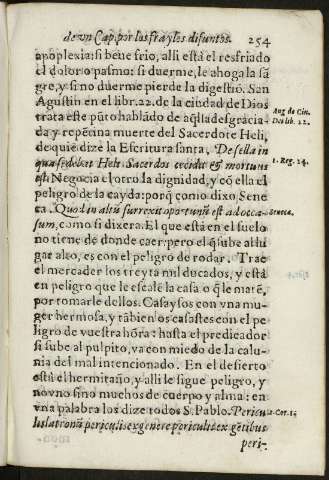 de vn Cap. por los frayles difuntos. 254
apoplexia: si beue frio, alli està el resfriado
el dolor o pasmo: si duerme, le ahoga la sã
gre, y si no duerme pierde la digestió. San
Agustin en el libr. 22. de la ciudad de Dios
trata este pũto hablãdo de aq̃lla desgracia
da y repẽtina muerte del Sacerdote Heli,
de quiẽ dize la Escritura santa. De sella in
qua sedebat Heli Sacerdos cecidit & mortuus
est. Negocia el otro la dignidad, y cõ ella el
peligro de la cayda: porq̃ como dixo Sene
ca. Quod in altũ surrexit oportunũ est ad occa-
sum, como si dixera. El que està en el suelo
no tiene de donde caer: pero el q̃ sube al lu
gar alto, es con el peligro de rodar. Trae
el mercader los treyta mil ducados, y està
en peligro que le escalẽ la casa o q̃ le matẽ,
por tomarle dellos. Casaysos con vna mu-
ger hermosa, y tãbien os casastes con el pe
ligro de vuestra hõra: hasta el predicador
si sube al pulpito, va con miedo de la calu-
nia del mal intencionado. En el desierto
està el hermitaño, y alli le sigue peligro, y
no vno sino muchos de cuerpo y alma: en
vna palabra los dize todos S. Pablo. Pericu
lis latronũ periculis ex genere periculis ex gẽtibus
peri-
Aug. de Ciu.
Dei lib. 22.
1. Reg. 14.
Seneca.
2. Cor. 11